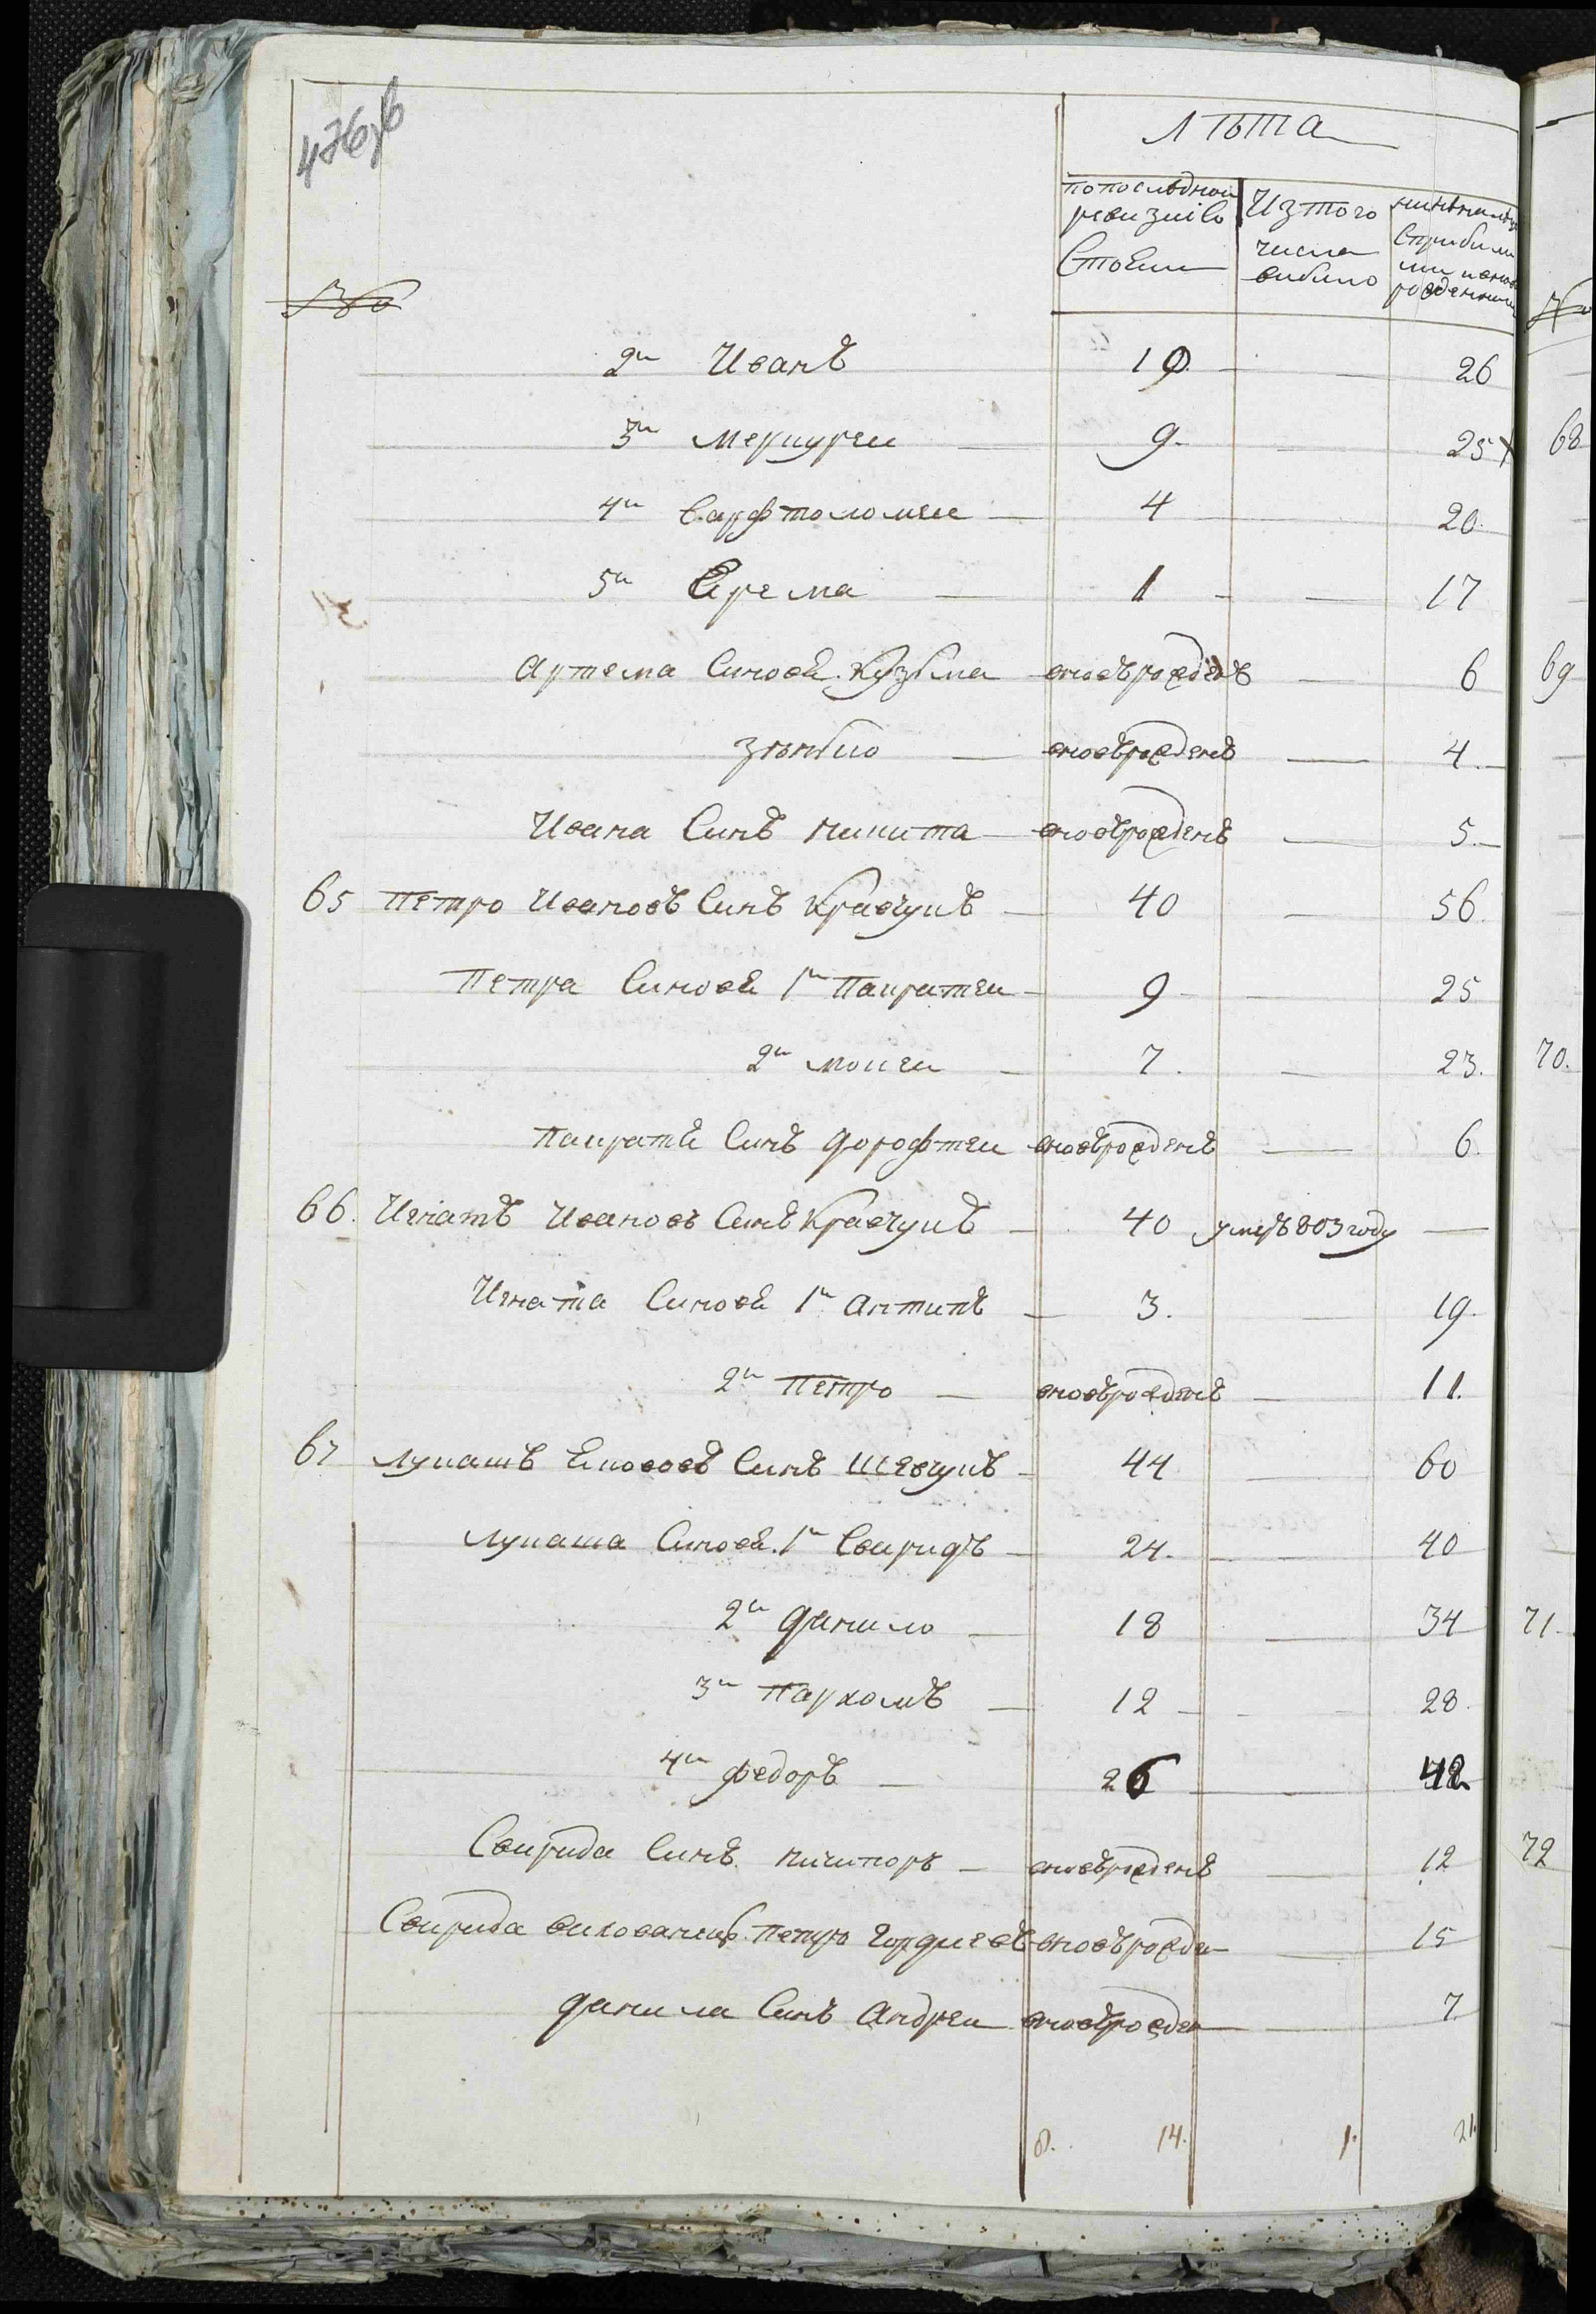 476 зв
Лѣта
№
попоследной ревизиіво Стоѣли
Изтого числа вибило
Сприбили рожденними
2й Иванъ 10 — 26
3й Меркурей — 9. — 25
4й Варфтоломей — 4 — 20.
5й Ерема — 1 — 17
Артема Синовѣ Кузьма вновѣрожденъ — 6
Зѣнько — вновѣрожденъ — 4.
Ивана Синъ Никита — вновѣрожденъ — 5.
65 Петро Ивановъ Синъ Кравчукъ — 40 — 56.
Петра Синовѣ 1й Панратей — 9 — 25
2й Мокей — 7. — 23.
Панратѣ Синъ Дорофтей вновѣрожденъ — 6.
66. Игнатъ Ивановъ Синъ Кравчукъ — 40 умеръ 803 году —
Игната Синовѣ 1й Антипъ — 3. — 19.
2й Петро — вновѣрожденъ — 11.
67 Лукашъ Яковովъ Синъ Шевчукъ — 44 — 60
Лукаша Синовѣ. 1й Свиридъ — 24. — 40
2й Данило — 18 — 34
3й Пархомъ — 12 — 28.
4й Федоръ — 26 — 42
Свирида Синъ Ничипоръ — вновѣрожденъ — 12
Свирида вихованецъ Петро Гордиевъ вновѣрожде — 15
Данила Синъ Андрей вновѣрожден — 7.
8. 14. 1. 21.
№
68
69
70.
71.
72